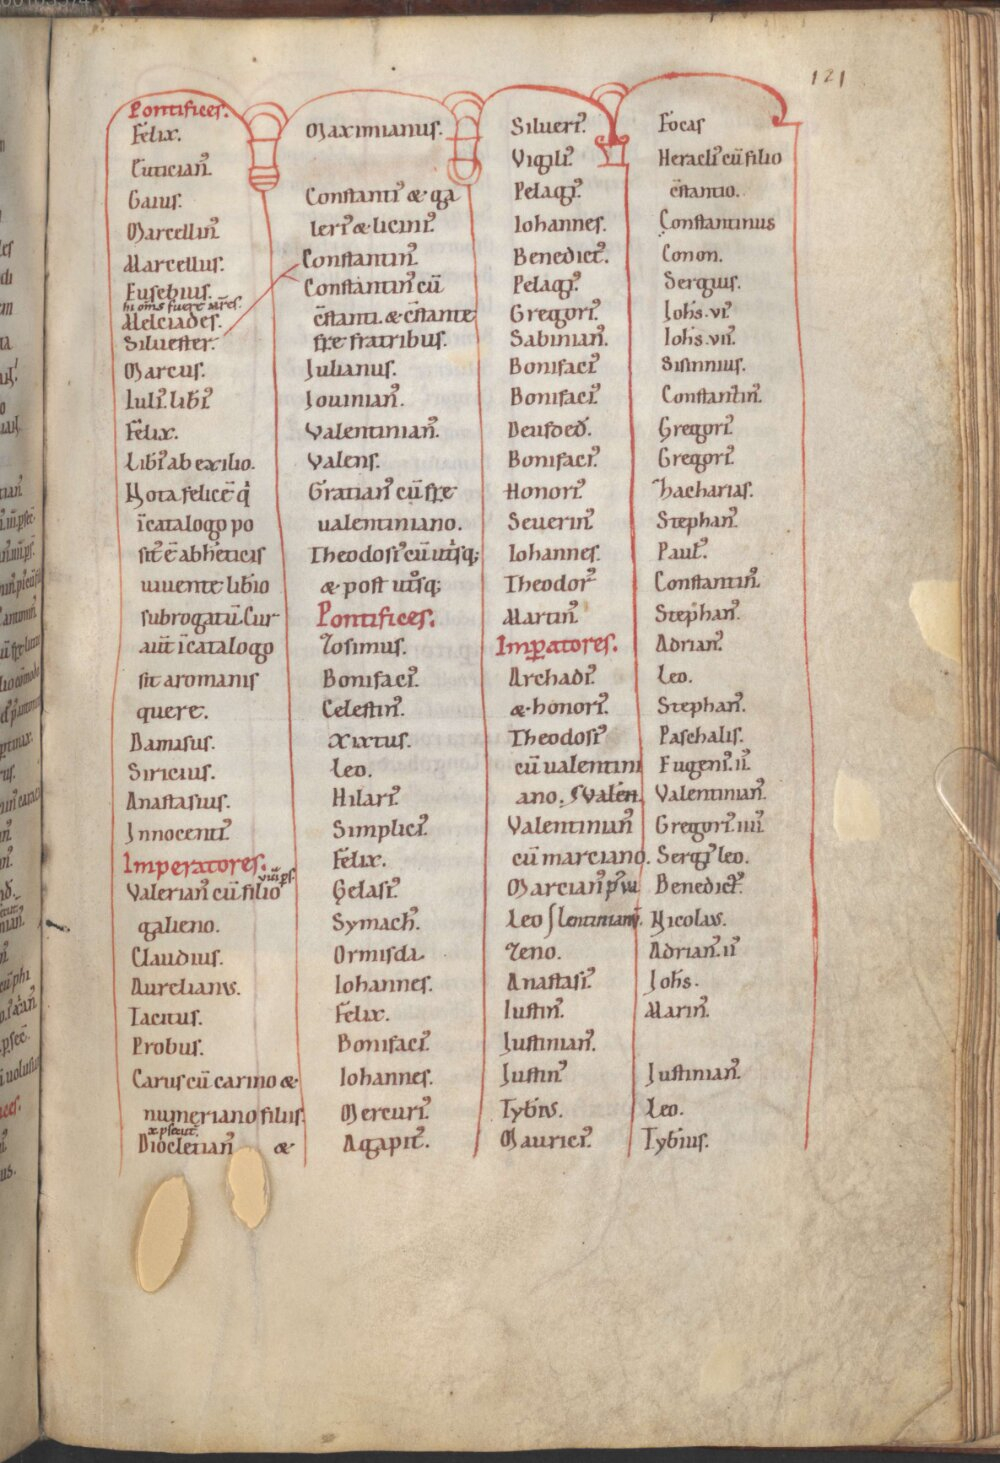 121
Pontifices.
Felix.
Euticianꝰ.
Gaius.
Marcellinꝰ
Marcellus.
Eusebius.
hi om̅s fuere mr̅es.
Melciades.
Siluester.
Marcus.
Iuliꝰ. libiꝰ
Felix.
Libiꝰ ab exilio.
Nota felice̅ q̇
i̅ catalogo po
sit̅ e̅ ab heticis
uiuente libio
subrogatu̅. Cur
aut̅ i̅ catalogo
sit a romanis
quere.
Damasus.
Siricius.
Anastasius.
Innocentiꝰ.
Imperatores.
viii. ps
Valerianꝰ cu̅ filio
galieno.
Claudius.
Aurelianus.
Tacitus.
Probus.
Carus cu̅ carino &
numeriano filiis.
x psecut̅.
Dioclecianꝰ &
Maximianus.
Constantiꝰ & ga
leriꝰ & liciniꝰ.
Constantinꝰ.
Constantinꝰ cu̅
c̅stanti. & c̅stante
fr̅e fratribus.
Iulianus.
Iouinianꝰ.
Valentinianꝰ.
Valens.
Gratianꝰ cu̅ fr̅e
ualentiniano.
Theodosiꝰ cu̅ ut̅sq;
& post ut̅sq;
Pontifices.
Zosimus.
Bonifaciꝰ.
Celestinꝰ.
Xixtus.
Leo.
Hilariꝰ.
Simpliciꝰ.
Felix.
Gelasiꝰ.
Symachꝰ.
Ormisda
Iohannes.
Felix.
Bonifaciꝰ.
Iohannes.
Mercuriꝰ.
Agapitꝰ.
Silueriꝰ.
Vigiliꝰ.
Pelagiꝰ.
Iohannes.
Benedictꝰ.
Pelagiꝰ.
Gregoriꝰ.
Sabinianꝰ.
Bonifaciꝰ
Bonifaciꝰ.
Deusdedꝰ.
Bonifaciꝰ.
Honoriꝰ.
Seuerinꝰ
Iohannes.
Theodorꝰ
Martinꝰ
Imp̲atores.
Archadiꝰ.
& honoriꝰ.
Theodosiꝰ
cu̅ ualentini
ano. Valen̅.
Valentinianꝰ
cu̅ marciano.
Marcianꝰ
Leo lentinianꝰ.
Zeno.
Anastasiꝰ.
Iustinꝰ.
Iustinianꝰ.
Iustinꝰ
Tybius.
Mauriciꝰ.
Focas
Heracliꝰ cu̅ filio
c̅stantio.
Constantinus
Conon.
Sergius.
Ioh̅s. viꝰ
Ioh̅s. viiꝰ.
Sisinnius.
Constantinꝰ.
Gregoriꝰ.
Gregoriꝰ.
Zacharias.
Stephanꝰ.
Paulꝰ.
Constantinꝰ.
Stephanꝰ.
Adrianꝰ.
Leo.
Stephanꝰ.
Paschalis.
Eugeniꝰ. iiꝰ.
Valentinianꝰ.
Gregoriꝰ. iiiiꝰ.
Sergiꝰ leo.
Benedictꝰ.
Nicolaus.
Adrianꝰ. iiꝰ
Ioh̅s.
Marinꝰ.
Iustinianꝰ.
Leo.
Tybius.